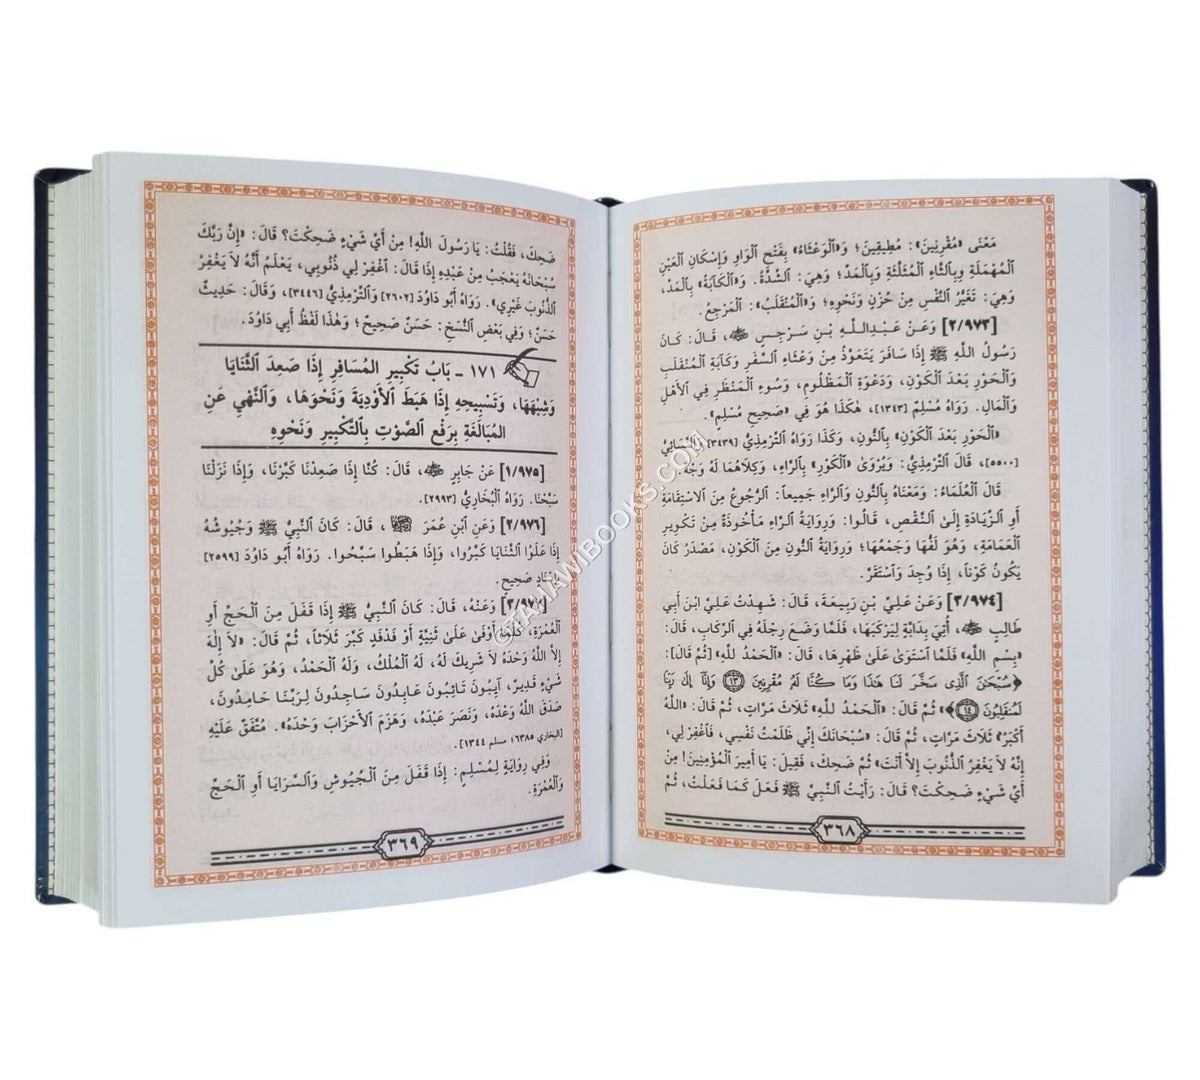 مَعْنَى «مُقْرِنِينَ»: مُطِيقِينَ؛ وَ«الْوَعْثَاءُ» بِفَتْحِ الْوَاوِ وَإِسْكَانِ الْعَيْنِ
الْمُهْمَلَةِ وَبِالثَّاءِ الْمُثَلَّثَةِ وَبِالْمَدِّ؛ وَهِيَ: الشِّدَّةُ. وَ«الْكَآبَةُ» بِالْمَدِّ،
وَهِيَ: تَغَيُّرُ النَّفْسِ مِنْ حُزْنٍ وَنَحْوِهِ؛ وَ«الْمُنْقَلَبُ»: الْمَرْجِعُ.
[٢/٩٧٣] وَعَنْ عَبْدِاللَّهِ بْنِ سَرْجِسَ ﷺ، قَالَ: كَانَ
رَسُولُ اللَّهِ ﷺ إِذَا سَافَرَ يَتَعَوَّذُ مِنْ وَعْثَاءِ السَّفَرِ وَكَآبَةِ الْمُنْقَلَبِ
وَالْحَوْرِ بَعْدَ الْكَوْنِ، وَدَعْوَةِ الْمَظْلُومِ، وَسُوءِ الْمَنْظَرِ فِي الْأَهْلِ
وَالْمَالِ. رَوَاهُ مُسْلِمٌ [١٣٤٣]، هٰكَذَا هُوَ فِي «صَحِيحِ مُسْلِمٍ».
«الْحَوْرِ بَعْدَ الْكَوْنِ» بِالنُّونِ، وَكَذَا رَوَاهُ التِّرْمِذِيُّ [٣٤٣٩] وَالنَّسَائِيُّ
[٥٥٠٠]، قَالَ التِّرْمِذِيُّ: وَيُرْوَىٰ «الْكَوْرِ» بِالرَّاءِ، وَكِلَاهُمَا لَهُ وَجْهٌ.
قَالَ الْعُلَمَاءُ: وَمَعْنَاهُ بِالنُّونِ وَالرَّاءِ جَمِيعاً: الرُّجُوعُ مِنَ الِاسْتِقَامَةِ
أَوِ الزِّيَادَةِ إِلَى النَّقْصِ، قَالُوا: وَرِوَايَةُ الرَّاءِ مَأْخُوذَةٌ مِنْ تَكْوِيرِ
الْعِمَامَةِ، وَهُوَ لَفُّهَا وَجَمْعُهَا؛ وَرِوَايَةُ النُّونِ مِنَ الْكَوْنِ، مَصْدَرُ كَانَ
يَكُونُ كَوْناً، إِذَا وُجِدَ وَاسْتَقَرَّ.
[٣/٩٧٤] وَعَنْ عَلِيِّ بْنِ رَبِيعَةَ، قَالَ: شَهِدْتُ عَلِيَّ ابْنَ أَبِي
طَالِبٍ ﷺ، أُتِيَ بِدَابَّةٍ لِيَرْكَبَهَا، فَلَمَّا وَضَعَ رِجْلَهُ فِي الرِّكَابِ، قَالَ:
«بِسْمِ اللَّهِ» فَلَمَّا اسْتَوَىٰ عَلَىٰ ظَهْرِهَا، قَالَ: «الْحَمْدُ لِلَّهِ» [ثُمَّ قَالَ]:
﴿سُبْحَٰنَ الَّذِى سَخَّرَ لَنَا هَٰذَا وَمَا كُنَّا لَهُ مُقْرِنِينَ ١٣ وَإِنَّا إِلَىٰ رَبِّنَا
لَمُنقَلِبُونَ ١٤﴾ ثُمَّ قَالَ: «الْحَمْدُ لِلَّهِ» ثَلَاثَ مَرَّاتٍ، ثُمَّ قَالَ: «اللَّهُ
أَكْبَرُ» ثَلَاثَ مَرَّاتٍ، ثُمَّ قَالَ: «سُبْحَانَكَ إِنِّي ظَلَمْتُ نَفْسِي، فَاغْفِرْ لِي،
إِنَّهُ لَا يَغْفِرُ الذُّنُوبَ إِلَّا أَنْتَ» ثُمَّ ضَحِكَ، فَقِيلَ: يَا أَمِيرَ الْمُؤْمِنِينَ! مِنْ
أَيِّ شَيْءٍ ضَحِكْتَ؟ قَالَ: رَأَيْتُ النَّبِيَّ ﷺ فَعَلَ كَمَا فَعَلْتُ، ثُمَّ
٣٦٨
ضَحِكَ، فَقُلْتُ: يَا رَسُولَ اللَّهِ! مِنْ أَيِّ شَيْءٍ ضَحِكْتَ؟ قَالَ: «إِنَّ رَبَّكَ
سُبْحَانَهُ يَعْجَبُ مِنْ عَبْدِهِ إِذَا قَالَ: اغْفِرْ لِي ذُنُوبِي، يَعْلَمُ أَنَّهُ لَا يَغْفِرُ
الذُّنُوبَ غَيْرِي». رَوَاهُ أَبُو دَاوُدَ [٢٦٠٢] وَالتِّرْمِذِيُّ [٣٤٤٦]، وَقَالَ: حَدِيثٌ
حَسَنٌ؛ وَفِي بَعْضِ النُّسَخِ: حَسَنٌ صَحِيحٌ؛ وَهٰذَا لَفْظُ أَبِي دَاوُدَ.
١٧١ - بَابُ تَكْبِيرِ الْمُسَافِرِ إِذَا صَعِدَ الثَّنَايَا
وَشِبْهَهَا، وَتَسْبِيحِهِ إِذَا هَبَطَ الْأَوْدِيَةَ وَنَحْوَهَا، وَالنَّهْيِ عَنِ
الْمُبَالَغَةِ بِرَفْعِ الصَّوْتِ بِالتَّكْبِيرِ وَنَحْوِهِ
[١/٩٧٥] عَنْ جَابِرٍ ﷺ، قَالَ: كُنَّا إِذَا صَعِدْنَا كَبَّرْنَا، وَإِذَا نَزَلْنَا
سَبَّحْنَا. رَوَاهُ الْبُخَارِيُّ [٢٩٩٣].
[٢/٩٧٦] وَعَنِ ابْنِ عُمَرَ، قَالَ: كَانَ النَّبِيُّ ﷺ وَجُيُوشُهُ
إِذَا عَلَوُا الثَّنَايَا كَبَّرُوا، وَإِذَا هَبَطُوا سَبَّحُوا. رَوَاهُ أَبُو دَاوُدَ [٢٥٩٩]
بِإِسْنَادٍ صَحِيحٍ.
[٣/٩٧٧] وَعَنْهُ، قَالَ: كَانَ النَّبِيُّ ﷺ إِذَا قَفَلَ مِنَ الْحَجِّ أَوِ
الْعُمْرَةِ، كُلَّمَا أَوْفَىٰ عَلَىٰ ثَنِيَّةٍ أَوْ فَدْفَدٍ كَبَّرَ ثَلَاثاً، ثُمَّ قَالَ: «لَا إِلٰهَ
إِلَّا اللَّهُ وَحْدَهُ لَا شَرِيكَ لَهُ، لَهُ الْمُلْكُ، وَلَهُ الْحَمْدُ، وَهُوَ عَلَىٰ كُلِّ
شَيْءٍ قَدِيرٌ، آيِبُونَ تَائِبُونَ عَابِدُونَ سَاجِدُونَ لِرَبِّنَا حَامِدُونَ،
صَدَقَ اللَّهُ وَعْدَهُ، وَنَصَرَ عَبْدَهُ، وَهَزَمَ الْأَحْزَابَ وَحْدَهُ». مُتَّفَقٌ عَلَيْهِ
[البخاري ٦٣٨٥؛ مسلم ١٣٤٤].
وَفِي رِوَايَةٍ لِمُسْلِمٍ: إِذَا قَفَلَ مِنَ الْجُيُوشِ وَالسَّرَايَا أَوِ الْحَجِّ
وَالْعُمْرَةِ.
٣٦٩